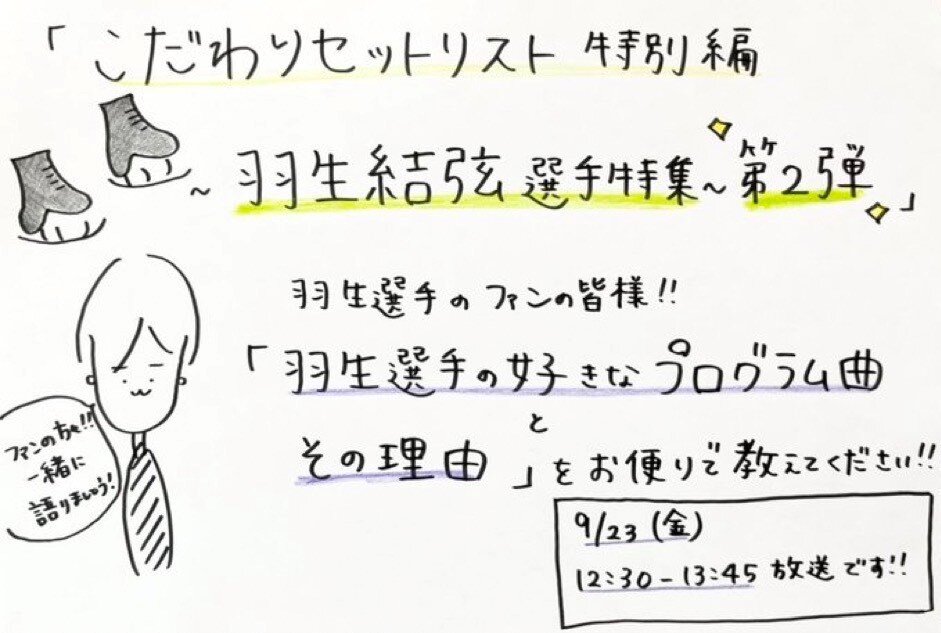 「こだわりセットリスト 特別編
~羽生結弦選手特集~第2弾」
羽生選手のファンの皆様!!
「羽生選手の好きなプログラム曲
と
その理由」をお便りで教えてください!!
ファンの方々!!
一緒に
語りましょう!
9/23(金)
12:30-13:45 放送です!!